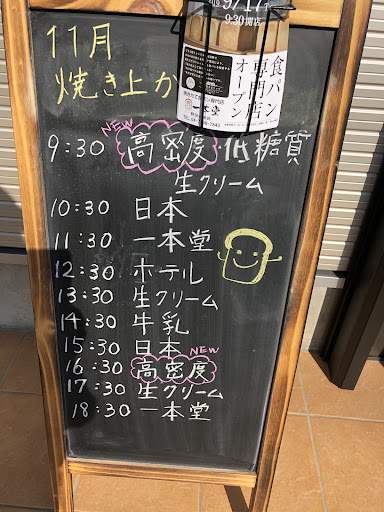 9/17
9:30開店
食パン
専門店
オープン
一本堂
11月
焼き上が
NEW
9:30 高密度 低糖質
生クリーム
10:30 日本
11:30 一本堂
12:30 ホテル
13:30 生クリーム
14:30 牛乳
15:30 日本
NEW
16:30 高密度
17:30 生クリーム
18:30 一本堂